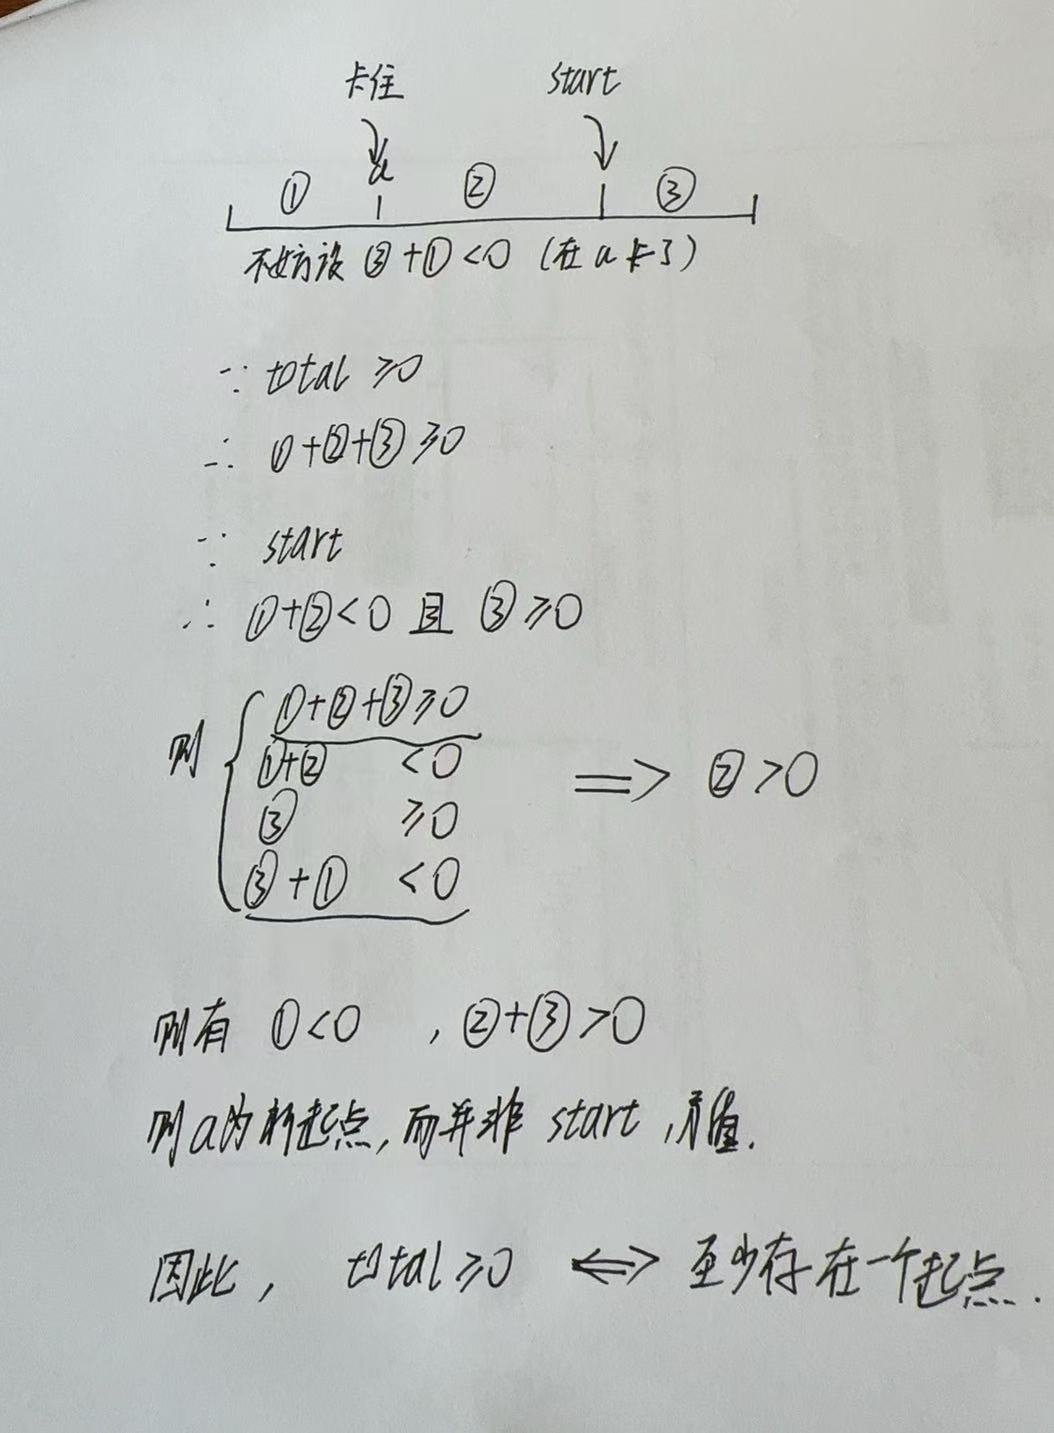 卡住 start
a
① ② ③
不妨设 ③+①<0 (在a卡了)
∵ total ≥0
∴ ①+②+③≥0
∵ start
∴ ①+②<0 且 ③≥0
①+②+③≥0
则 ①+② <0 ⟹ ②>0
③ ≥0
③+① <0
则有 ①<0 , ②+③>0
则a为新起点,而并非 start ,矛盾.
因此, total≥0 ⟺ 至少存在一个起点.